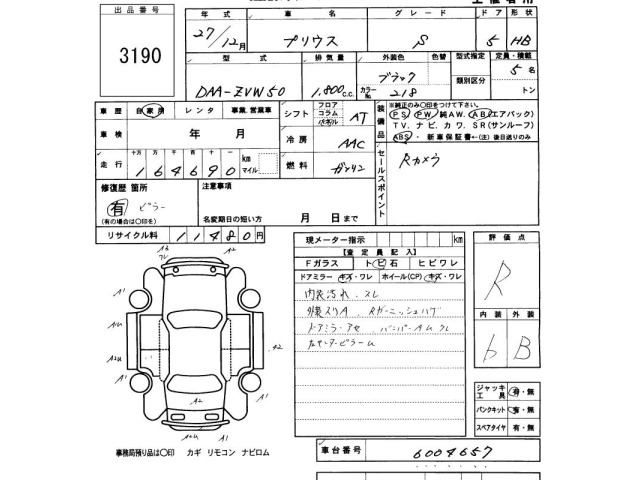 出品番号
3190
年式 車名 グレード ドア 形状
27/12月 プリウス S 5 HB
型式 排気量 外装色 色替 型式指定 定員・積載
DAA-ZVW50 1,800c.c. ブラック カラーNo. 218 類別区分 5名 トン
車歴 自家用 レンタ 事業、営業車
車検 年 月
走行 十万 万 千 百 十 一 km マイル
164690
修復歴 箇所 注意事項
有 ピラー
(有の場合は〇印を) 名変期日の短い方 月 日まで
リサイクル料 11480円
シフト フロア コラム パネル AT
冷房 AAC
燃料 ガソリン
装備品 ※純正のみ〇印をつけて下さい。
PS PW 純AW. AB(エアバック)
TV. ナビ. カワ. SR(サンルーフ)
ABS・新車保証書←(注)後日送りのみ
セールスポイント Rカメラ
現メーター指示 km
【査定員記入】
Fガラス トビ石 ヒビワレ
ドアミラー キズ・ワレ ホイール(CP) キズ・ワレ
内装汚れ、スレ
外装スリA Rガーニッシュハゲ
ドアミラーアセ
評価点
R
内装 外装
6 B
ジャッキ 工具 有・無
パンクキット 有・無
スペアタイヤ 有・無
車台番号 6004657
A1 A2 A1
AU A1
A2U A2
A1 A1
A2
A2U A1
事務局預り品は〇印 カギ リモコン ナビロム